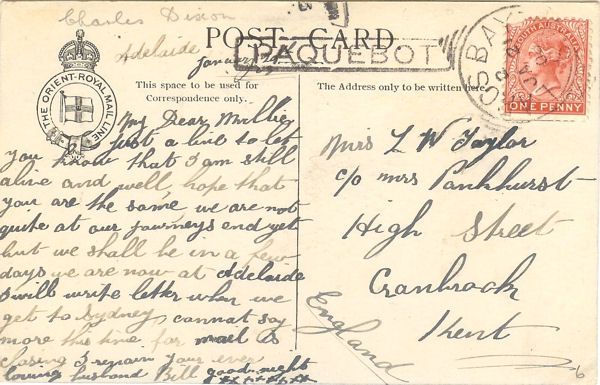 Charles Dixon
Adelaide
POST CARD.
PAQUEBOT
January 29
THE ORIENT-ROYAL MAIL LINE
This space to be used for
Correspondence only.
My Dear Millie,
just a line to let
you know that I am still
alive and well, hope that
you are the same we are not
quite at our journeys end yet
but we shall be in a few
days we are now at Adelaide
I will write letter when we
get to Sydney, cannot say
more this time for mail is
closing I remain your ever
loving husband Bill good-night
xxxxxxx
The Address only to be written here
SOUTH AUSTRALIA
ONE PENNY
Mrs L W Taylor
c/o Mrs Pankhurst
High Street
Cranbrook
Kent
England
6